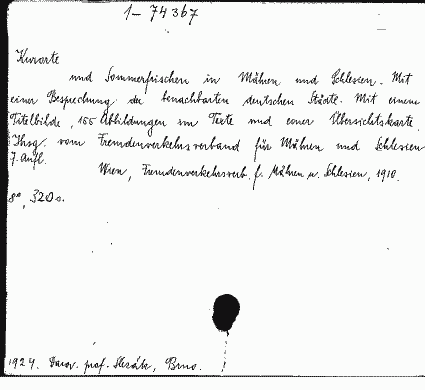 1- 74367
Kurorte
und Sommerfrischen in Mähren und Schlesien. Mit
einer Besprechung der benachbarten deutschen Städte. Mit einem
Titelbilde, 155 Abbildungen im Texte und einer Übersichtskarte.
Hrsg. vom Fremdenverkehrsverband für Mähren und Schlesien
7. Aufl.
Wien, Fremdenverkehrsverb. f. Mähren u. Schlesien, 1910.
8°, 320 s.
1924. Darov. prof. Slezák, Brno.